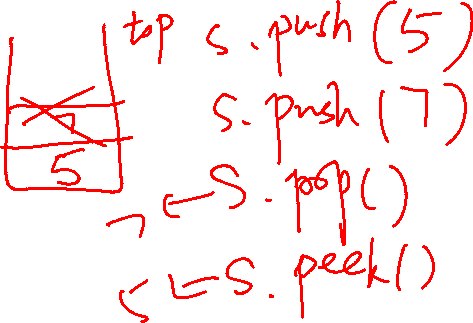 top s.push(5)
7 s.push(7)
5
7 ← S.pop()
5 ← S.peek()